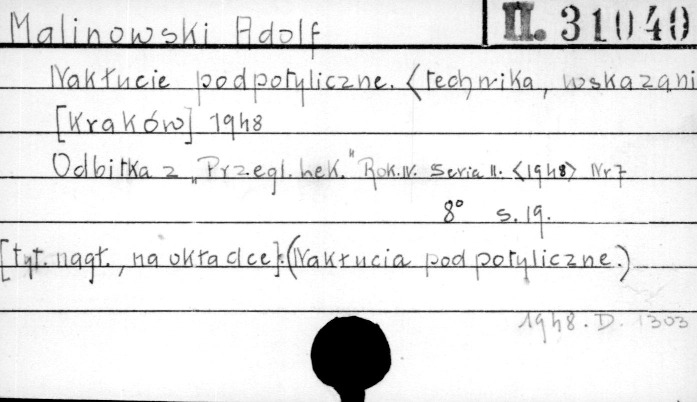 Malinowski Adolf II. 31040
Nakłucie podpotyliczne. <technika, wskazani
[Kraków] 1948
Odbitka z "Przegl. Lek." Rok. IV. Seria II. <1948> Nr 7
8° s. 19.
[tyt. nagł., na okładce]: (Nakłucia podpotyliczne.)
1948. D. 1303